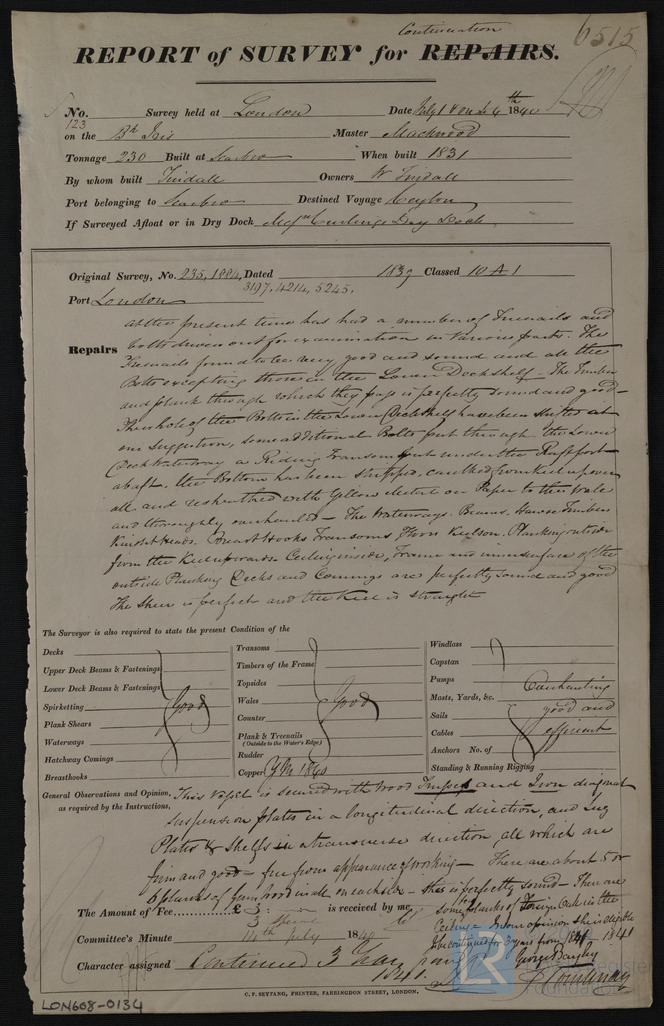 Continuation
6515
REPORT of SURVEY for REPAIRS.
No. 123 Survey held at London Date July 1840
on the Bk Iris Master Mackwood
Tonnage 230 Built at Scarbro When built 1831
By whom built Tindall Owners W Tindall
Port belonging to Scarbro Destined Voyage Ceylon
If Surveyed Afloat or in Dry Dock Messrs Curlings Dry Dock
Original Survey, No. 235, 1884, Dated 1839 Classed 10 A 1
3197, 4214, 5245,
Port London
Repairs
at the present time has had a number of Treenails and
bolts driven out for examination in various parts. The
Treenails found to be very good and sound and all the
Bolts excepting those in the Lower Deck shelf – The Timber
and plank through which they pass is perfectly sound and good –
The whole of the Bolts in the Lower Deck Shelf have been shifted at
our suggestion, some additional Bolts put through the Lower
Deck Waterway a Riding Transom put under the Raft port
abaft. the Bottom has been stripped, caulked up over
all and resheathed with Yellow Metal on Paper to the Wale
and thoroughly overhauled – The Waterways. Beams, Hawse Timbers
Knight Heads. Breast Hooks Transoms, Keelson. Planking outside
from the Keel upwards. Ceiling inside, Frame and inner surface of the
outside Planking Decks and Comings are perfectly sound and good
The Sheer is perfect and the Keel is straight
The Surveyor is also required to state the present Condition of the
Decks
Upper Deck Beams & Fastenings
Lower Deck Beams & Fastenings
Spirketting
Plank Shears
Waterways
Hatchway Comings
Breasthooks
Good
Transoms
Timbers of the Frame
Topsides
Wales
Counter
Plank & Treenails
(Outside to the Water's Edge)
Rudder
Copper YM 1840
Good
Windlass
Capstan
Pumps
Masts, Yards, &c.
Sails
Cables
Anchors No. of
Standing & Running Rigging
good and
efficient
General Observations and Opinion,
as required by the Instructions,
This Vessel is secured with wood and Iron diagonal
suspension plates in a longitudinal direction, and Lug
Plates & Shelfs in a transverse direction, all which are
firm and good – free from appearance of working – There are about 5 or
6 planks of Gum wood in all on each side – this is perfectly sound – There are
some planks of Foreign Oak in the
Ceiling – In our opinion she is eligible
to be continued for 3 years from 1841
The Amount of Fee £ 3 is received by me,
Committee's Minute 14th July 1840
Character assigned Continued 3 Years
from 1841.
George Bayley
C. F. SEYFANG, PRINTER, FARRINGDON STREET, LONDON.
LON608-0134
LR
Register
Foundation